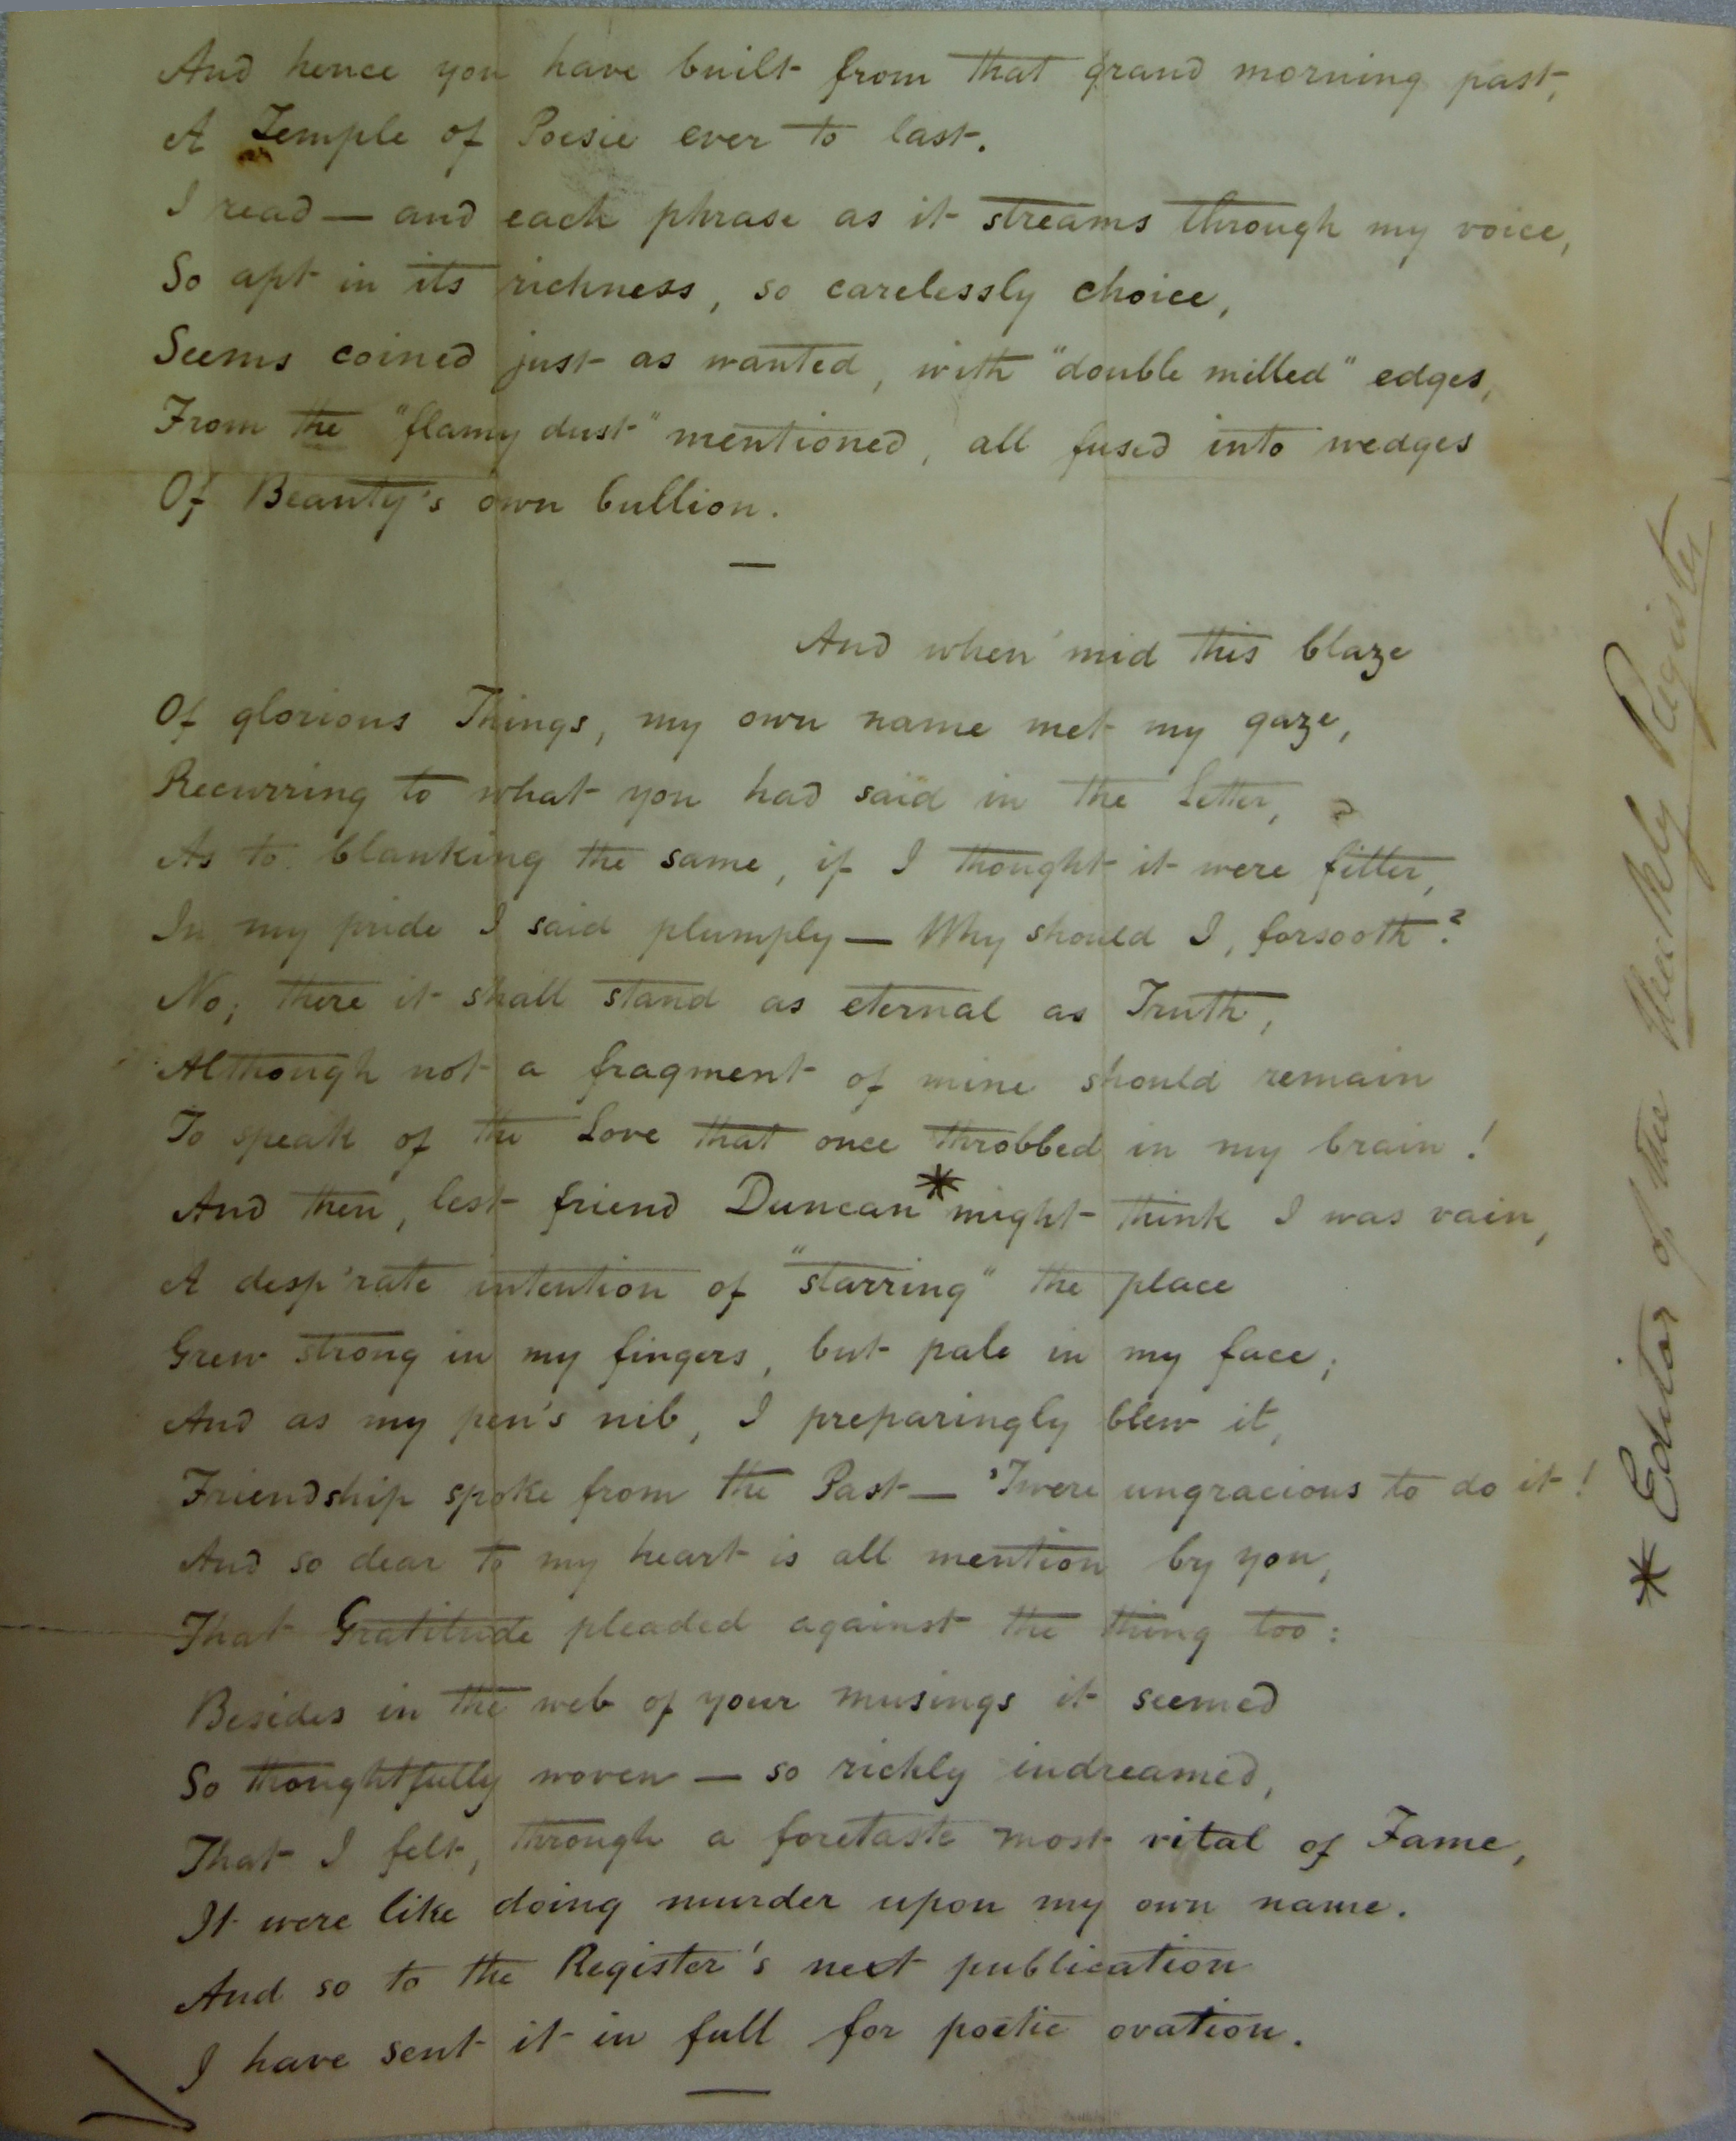 And hence you have built from that grand morning past,
A Temple of Poesie ever to last.
I read — and each phrase as it streams through my voice,
So apt in its richness, so carelessly choice,
Seems coined just as wanted, with "double milled" edges,
From the "flamy dust" mentioned, all fused into wedges
Of Beauty's own bullion.
—
And when 'mid this blaze
Of glorious Things, my own name met my gaze,
Recurring to what you had said in the Letter,
As to blanking the same, if I thought it were fitter,
In my pride I said plumply — Why should I, forsooth?
No; there it shall stand as eternal as Truth,
Although not a fragment of mine should remain
To speak of the Love that once throbbed in my brain!
And then, lest friend Duncan* might think I was vain,
A desp'rate intention of "starring" the place
Grew strong in my fingers, but pale in my face;
And as my pen's nib, I preparingly blew it,
Friendship spoke from the Past — 'Twere ungracious to do it!
And so dear to my heart is all mention by you,
That Gratitude pleaded against the thing too:
Besides in the web of your musings it seemed
So thoughtfully woven — so richly indreamed,
That I felt, through a foretaste most vital of Fame,
It were like doing murder upon my own name.
And so to the Register's next publication
I have sent it in full for poetic ovation.
—
* Editor of the Weekly Register